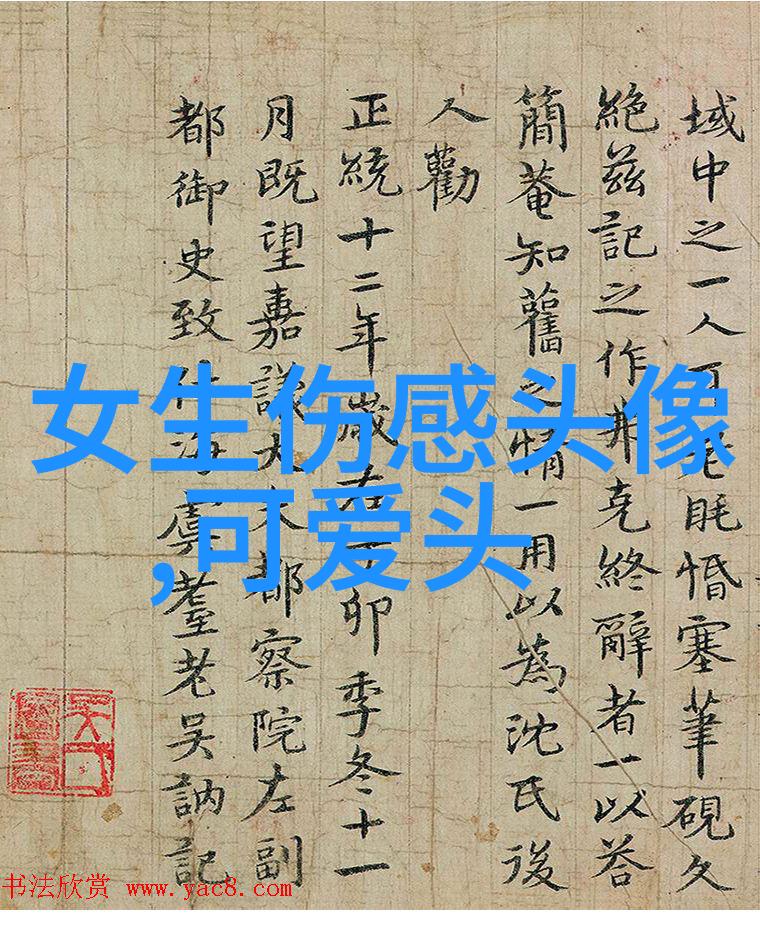 域中之一人而老眊惛塞筆硯久
絕兹記之作弗克終辭者一以荅
簡菴知舊之情一用以為沈氏後
人勸
正統十二年歲在丁卯季冬十一
月既望嘉議大夫都察院左副
都御史致仕海虞耋老吳訥記
女生伤感头像
,可爱头
书法欣赏 www.yac8.com